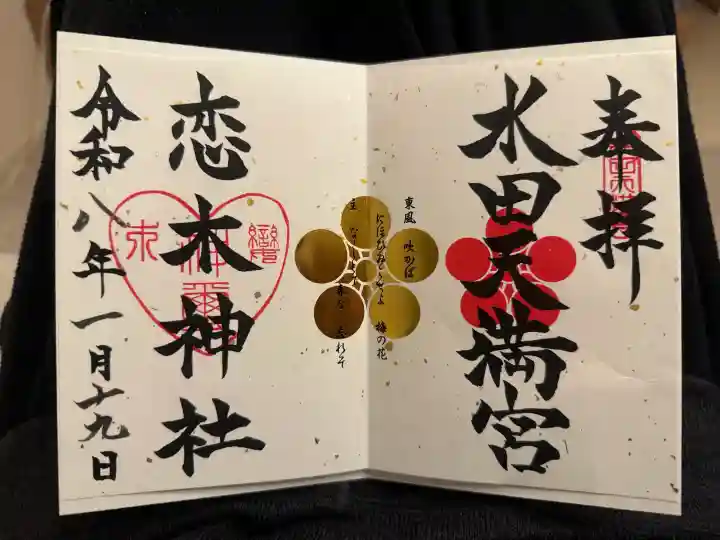 奉拝
水田天満宮
東風 吹かば
にほひおこせよ 梅の花
主 なしとて 春な 忘れそ
恋木神社
令和八年一月十九日